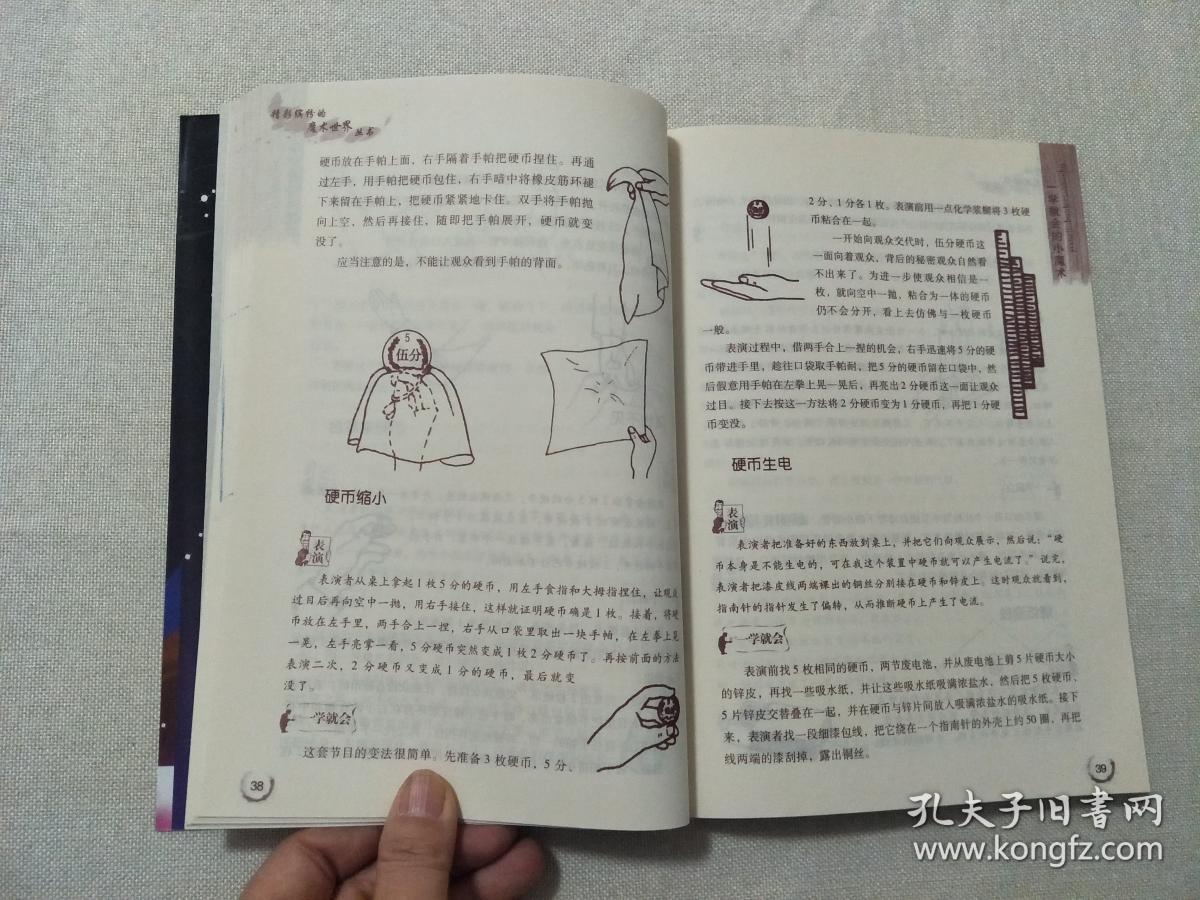 精彩缤纷的
魔术世界丛书
硬币放在手帕上面，右手隔着手帕把硬币捏住。再通
过左手，用手帕把硬币包住，右手暗中将橡皮筋环褪
下来留在手帕上，把硬币紧紧地卡住。双手将手帕抛
向上空，然后再接住，随即把手帕展开，硬币就变
没了。
应当注意的是，不能让观众看到手帕的背面。
5
伍分
硬币缩小
表演
表演者从桌上拿起1枚5分的硬币，用左手食指和大拇指捏住，让观众
过目后再向空中一抛，用右手接住，这样就证明硬币确是1枚。接着，将硬
币放在左手里，两手合上一捏，右手从口袋里取出一块手帕，在左拳上晃
一晃，左手亮掌一看，5分硬币突然变成1枚2分硬币了。再按前面的方法
表演二次，2分硬币又变成1分的硬币，最后就变
没了。
一学就会
这套节目的变法很简单。先准备3枚硬币，5分、
38
一学就会的小魔术
2分、1分各1枚。表演前用一点化学浆糊将3枚硬
币粘合在一起。
一开始向观众交代时，伍分硬币这
一面向着观众，背后的秘密观众自然看
不出来了。为进一步使观众相信是一
枚，就向空中一抛，粘合为一体的硬币
仍不会分开，看上去仿佛与一枚硬币
一般。
表演过程中，借两手合上一捏的机会，右手迅速将5分的硬
币带进手里，趁往口袋取手帕耐，把5分的硬币留在口袋中，然
后假意用手帕在左拳上晃一晃后，再亮出2分硬币这一面让观众
过目。接下去按这一方法将2分硬币变为1分硬币，再把1分硬
币变没。
硬币生电
表演
表演者把准备好的东西放到桌上，并把它们向观众展示，然后说：“硬
币本身是不能生电的，可在我这个装置中硬币就可以产生电流了。”说完，
表演者把漆皮线两端裸出的铜丝分别接在硬币和锌皮上。这时观众就看到，
指南针的指针发生了偏转，从而推断硬币上产生了电流。
一学就会
表演前找5枚相同的硬币，两节废电池，并从废电池上剪5片硬币大小
的锌皮，再找一些吸水纸，并让这些吸水纸吸满浓盐水，然后把5枚硬币、
5片锌皮交替叠在一起，并在硬币与锌片间放入吸满浓盐水的吸水纸。接下
来，表演者找一段细漆包线，把它绕在一个指南针的外壳上约50圈，再把
线两端的漆刮掉，露出铜丝。
39
孔夫子旧书网
www.kongfz.com